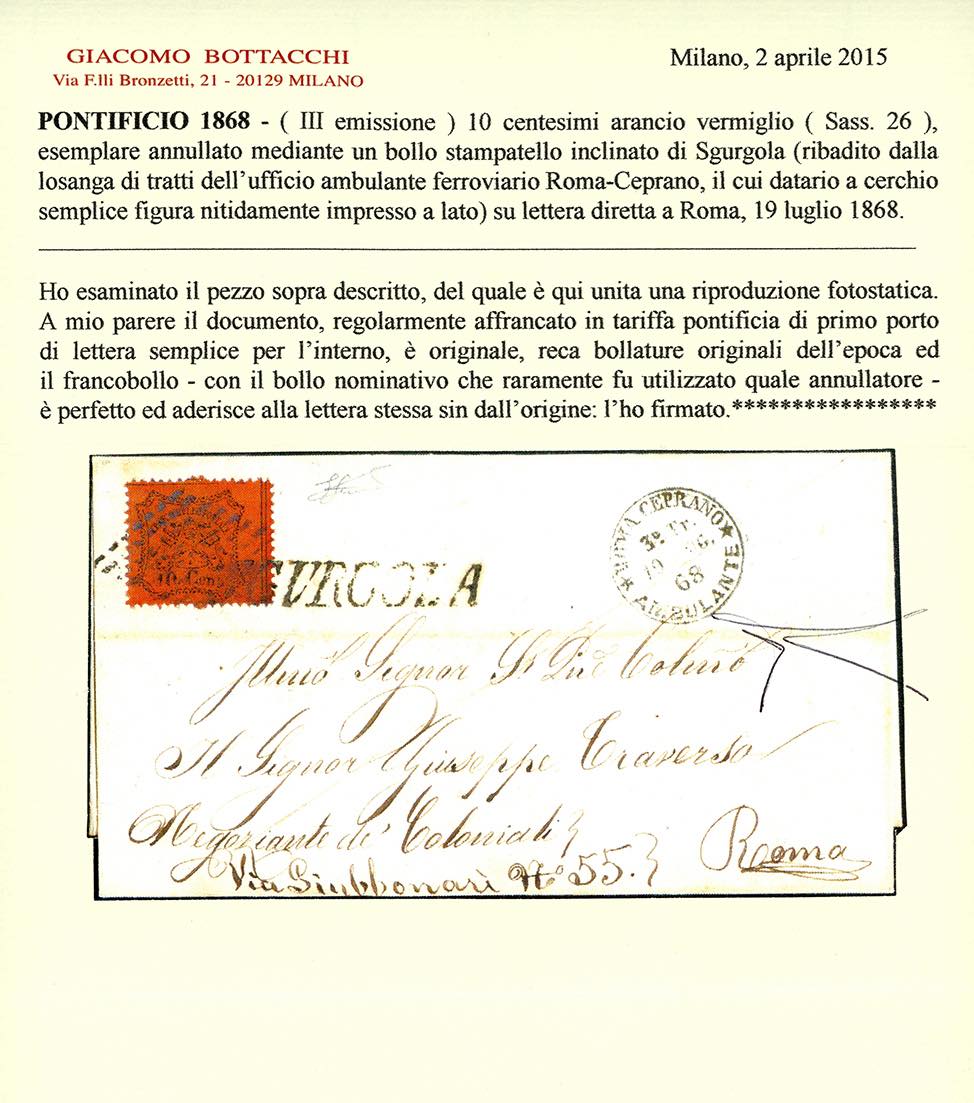 GIACOMO BOTTACCHI
Via F.lli Bronzetti, 21 - 20129 MILANO
Milano, 2 aprile 2015
PONTIFICIO 1868 - ( III emissione ) 10 centesimi arancio vermiglio ( Sass. 26 ),
esemplare annullato mediante un bollo stampatello inclinato di Sgurgola (ribadito dalla
losanga di tratti dell’ufficio ambulante ferroviario Roma-Ceprano, il cui datario a cerchio
semplice figura nitidamente impresso a lato) su lettera diretta a Roma, 19 luglio 1868.
Ho esaminato il pezzo sopra descritto, del quale è qui unita una riproduzione fotostatica.
A mio parere il documento, regolarmente affrancato in tariffa pontificia di primo porto
di lettera semplice per l’interno, è originale, reca bollature originali dell’epoca ed
il francobollo - con il bollo nominativo che raramente fu utilizzato quale annullatore -
è perfetto ed aderisce alla lettera stessa sin dall’origine: l’ho firmato.*****************
10 Cen
GURGOLA
ROMA CEPRANO
68
AMBULANTE
Signor
Il Signor Giuseppe Traverso
Negoziante de' Coloniali
Via Giubbonari No 55.
Roma